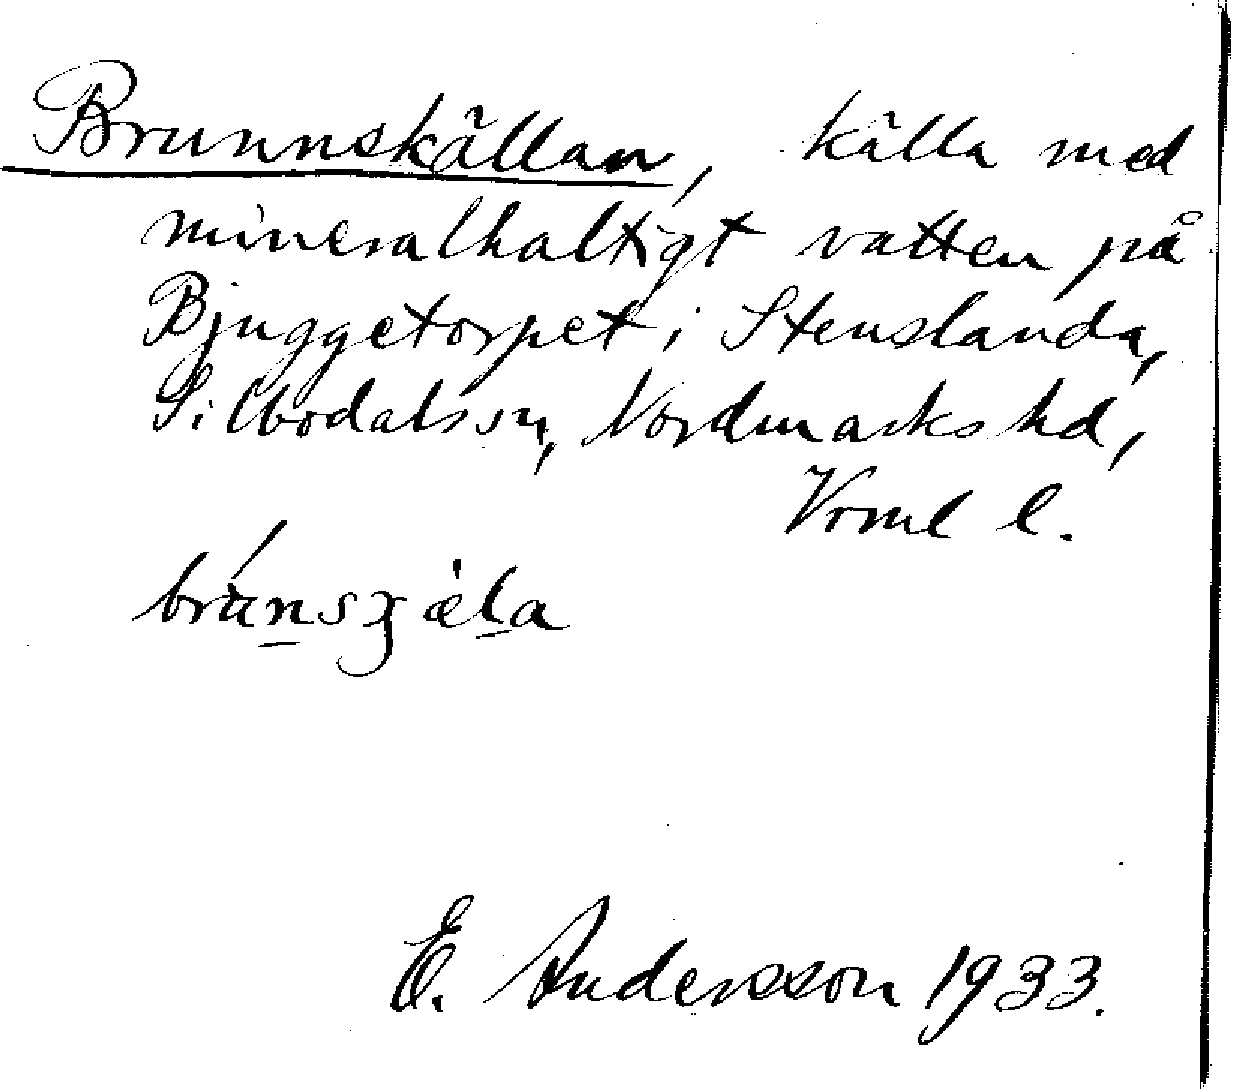 Brunnskällan, källa med
mineralhaltigt vatten på
Bjuggetorpet i Stenslanda,
Silbodals sn, Nordmarks hd,
Vrml l.
E. Andersson 1933.